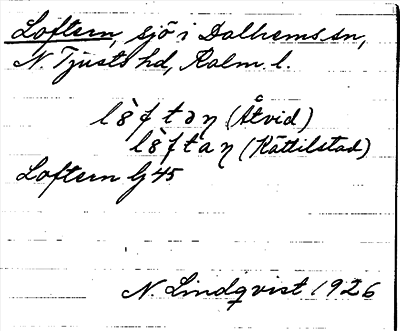 Loftern, sjö i Dalhems sn,
N. Tjusts hd, Kalm. l.
lò̀ftəη (Åtvid)
lò̀ftaη (Kättilstad)
Loftern G 45
N. Lindqvist 1926